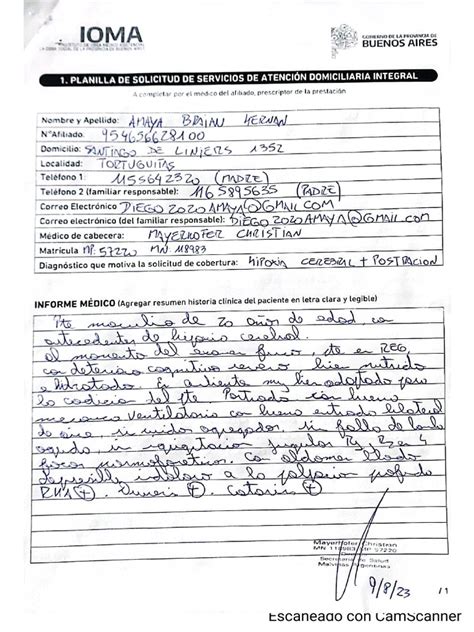 IOMA
INSTITUTO DE OBRA MÉDICO ASISTENCIAL
LA OBRA SOCIAL DE LA PROVINCIA DE BUENOS AIRES
GOBIERNO DE LA PROVINCIA DE
BUENOS AIRES
1. PLANILLA DE SOLICITUD DE SERVICIOS DE ATENCIÓN DOMICILIARIA INTEGRAL
A completar por el médico del afiliado, prescriptor de la prestación.
Nombre y Apellido: AMAYA BRAIAN HERNAN
N°Afiliado: 954656628100
Domicilio: SANTIAGO DE LINIERS 1352
Localidad: TORTUGUITAS
Teléfono 1: 1155642320 (MADRE)
Teléfono 2 (familiar responsable): 1165895635 (PADRE)
Correo Electrónico DIEGO2020AMAYA@GMAIL.COM
Correo electrónico (del familiar responsable): DIEGO2020AMAYA@GMAIL.COM
Médico de cabecera: MAYERHOFER CHRISTIAN
Matrícula MP: 57220 MN: 118983
Diagnóstico que motiva la solicitud de cobertura: HIPOXIA CEREBRAL + POSTRACION
INFORME MÉDICO (Agregar resumen historia clínica del paciente en letra clara y legible)
Pte masculino de 20 años de edad, con
antecedentes de hipoxia cerebral.
al momento del examen físico pte en REG
con deterioro cognitivo severo, bien nutrido
e hidratado. En ambiente muy bien adaptado para
la del pte Postrado con buena
mecanica ventilatoria con buena entrada bilateral
de aire, sin ruidos agregados, sin fallo de bomba
agudo, sin ingurgitacion yugular R1 R2 en 4
focos normofoneticos. Con abdomen blando
depresible indoloro a la palpacion profunda
RHA (+). Diuresis (+). Catarsis (+).
Mayerhofer Christian
MN 118983 MP 57220
Secretaría de Salud
Malvinas Argentinas
9/8/23
/ 1
Escaneado con CamScanner